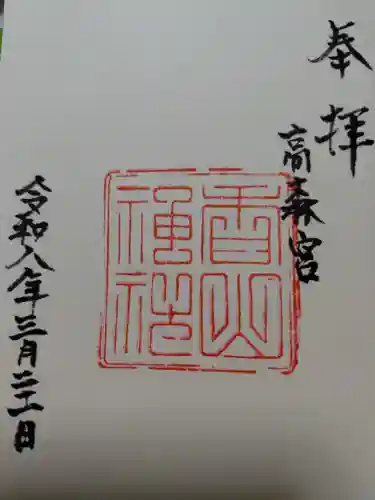 奉拝
高森宮
香山
神社
令和八年三月二十一日